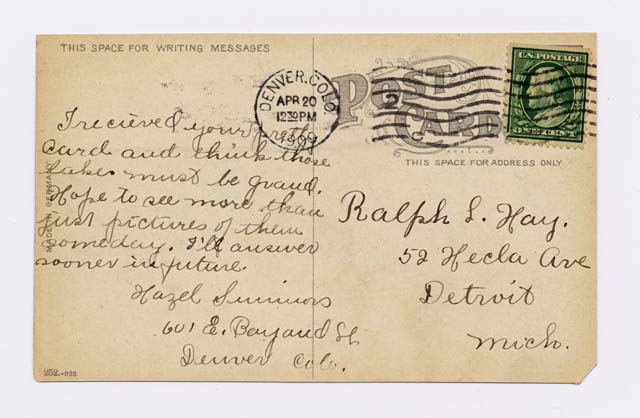 THIS SPACE FOR WRITING MESSAGES
DENVER, COLO.
APR 20
12 30 PM
1909
2
POST
CARD
U.S. POSTAGE
ONE CENT
THIS SPACE FOR ADDRESS ONLY
I recieved your pretty
card and think those
lakes must be grand.
Hope to see more than
just pictures of them
someday. I'll answer
sooner in future.
Hazel Simmons
601 E. Bayand St
Denver Colo.
MADE IN GERMANY
252.-
Ralph L. Hay.
52 Hecla Ave
Detroit
Mich.